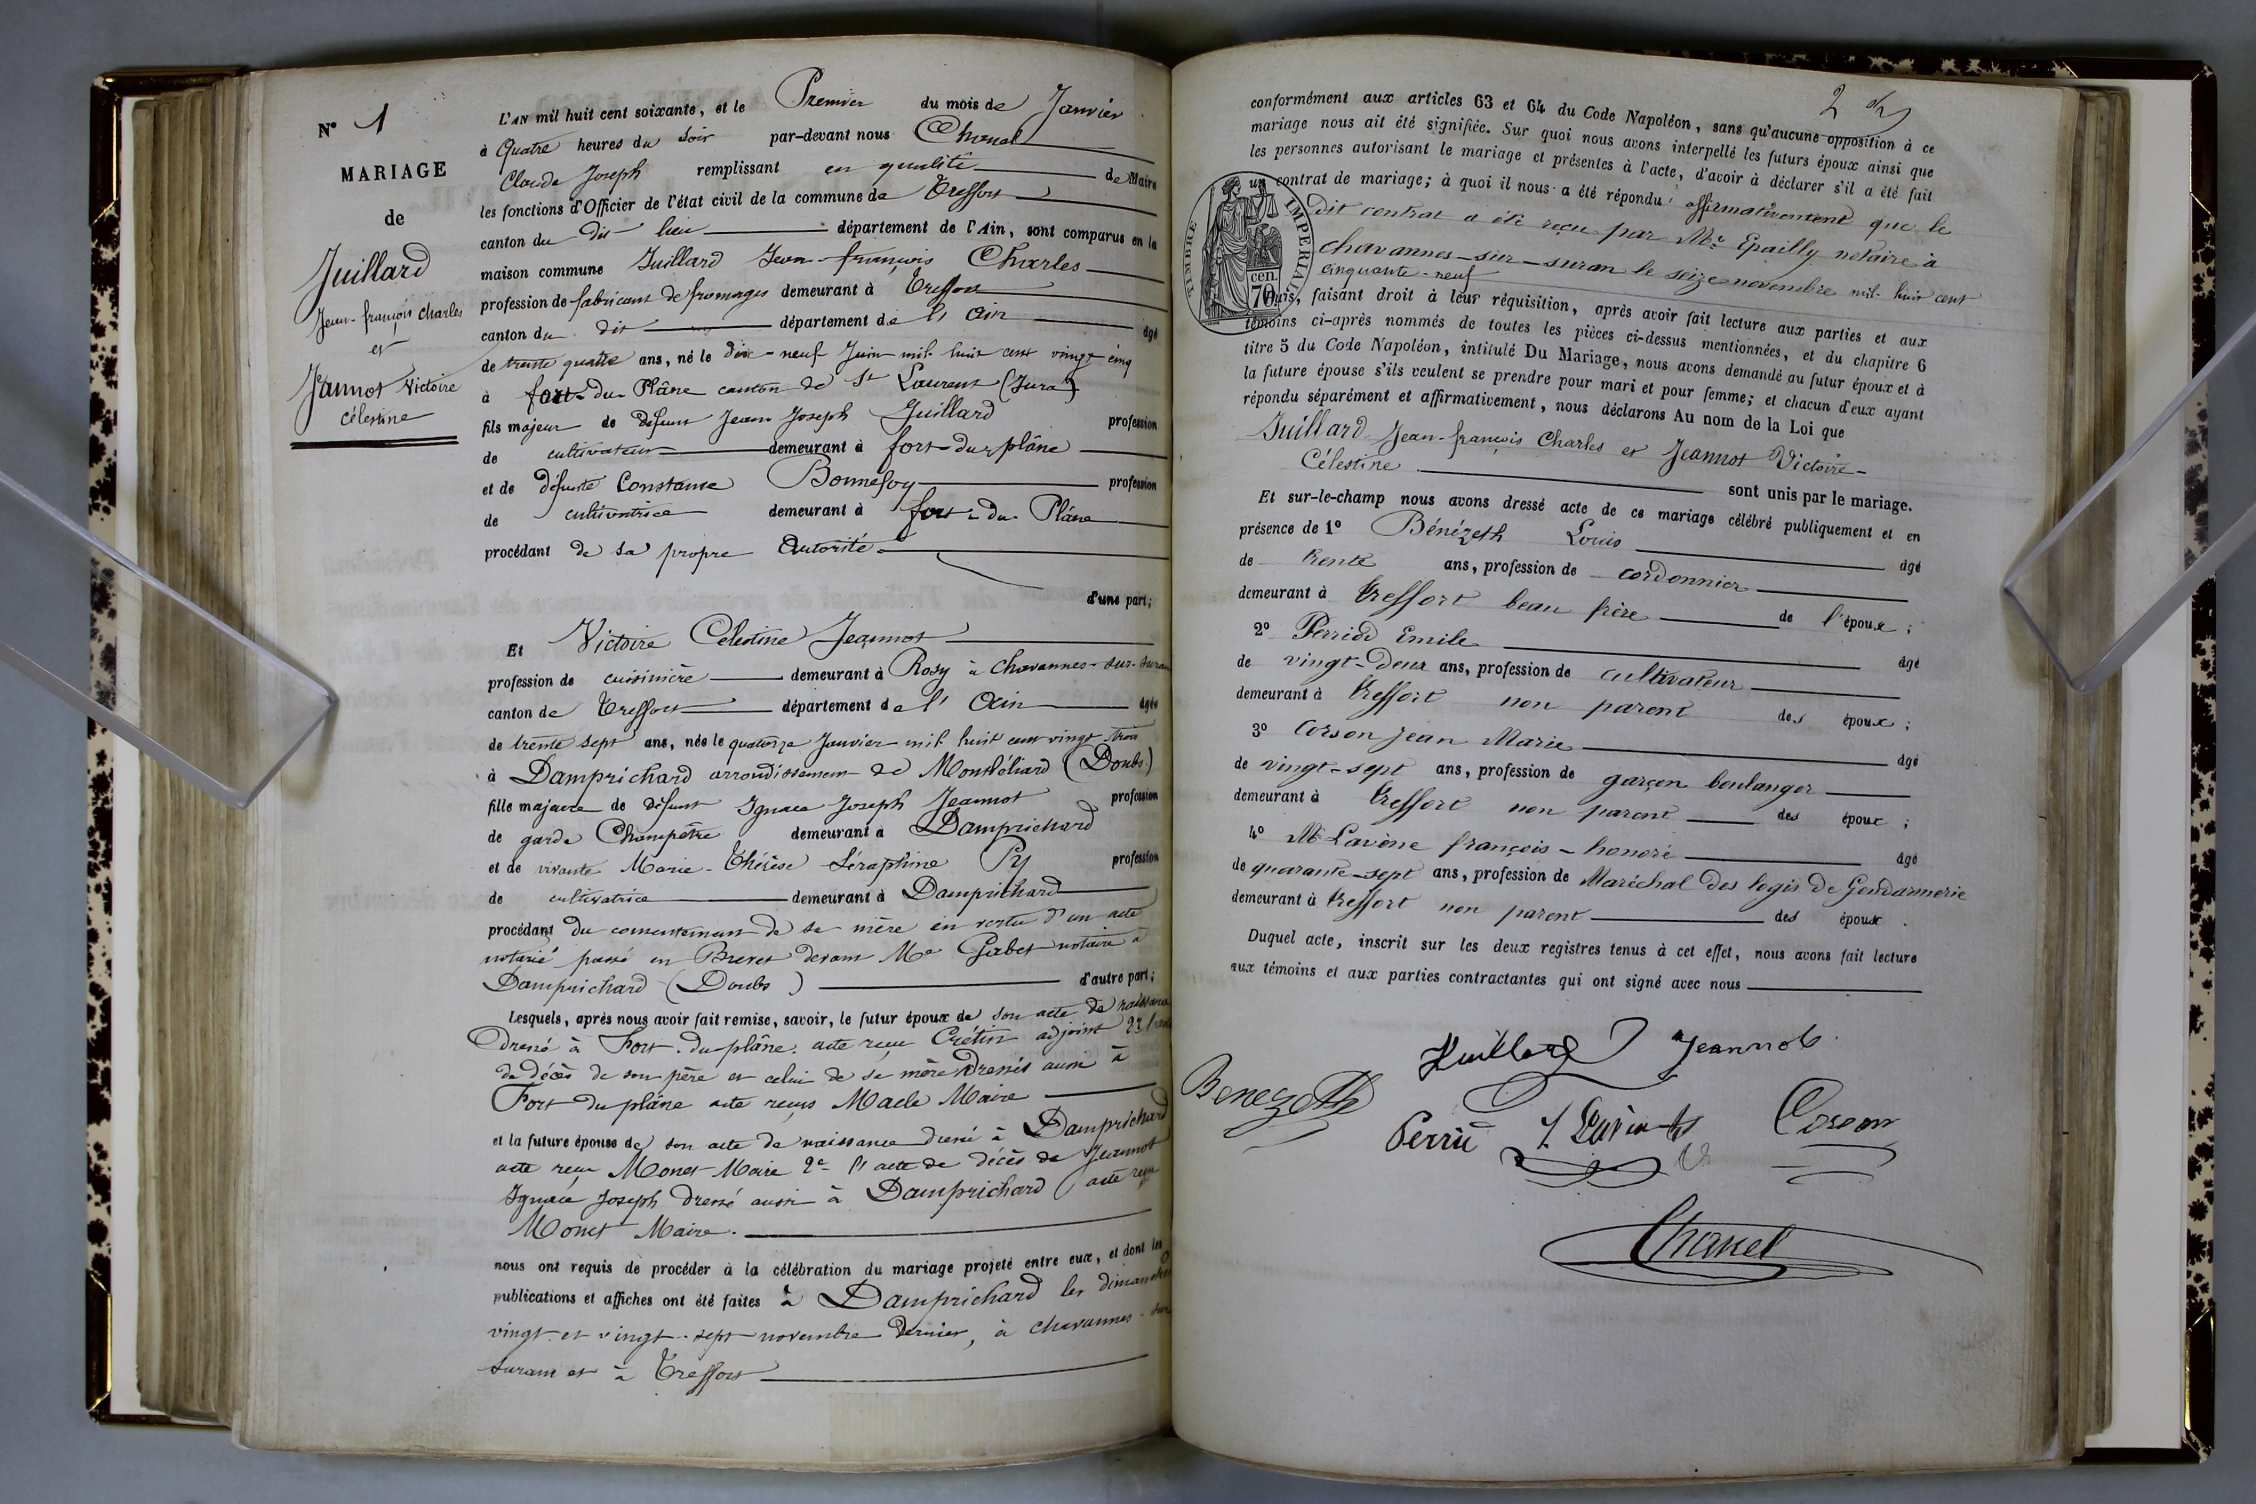 N° 1
MARIAGE
de
Juillard
Jean-françois Charles
et
Jeannot Victoire
Célestine
L'AN mil huit cent soixante, et le Premier du mois de Janvier
à Quatre heures du soir par-devant nous Chanel
Claude Joseph remplissant en qualité de Maire
les fonctions d'Officier de l'état civil de la commune de Treffort
canton du dit lieu département de l'Ain, sont comparus en la
maison commune Juillard Jean-françois Charles
profession de fabricant de fromages demeurant à Treffort
canton du dit département de l'Ain âgé
de trente quatre ans, né le dix-neuf Juin mil huit cent vingt cinq
à fort-du-Plâne canton de St Laurent (Jura)
fils majeur de défunt Jean Joseph Juillard profession
de cultivateur demeurant à fort-du-plâne
et de défunte Constance Bonnefoy profession
de cultivatrice demeurant à fort-du-Plâne
procédant de sa propre Autorité
d'une part;
Et Victoire Célestine Jeannot
profession de cuisinière demeurant à Rosy à Chavannes-sur-Suran
canton de Treffort département de l'Ain âgée
de trente sept ans, née le quatorze Janvier mil huit cent vingt trois
à Damprichard arrondissement de Montbéliard (Doubs)
fille majeure de défunt Ignace Joseph Jeannot profession
de garde Champêtre demeurant à Damprichard
et de vivante Marie-Thérèse Séraphine Py profession
de cultivatrice demeurant à Damprichard
procédant du consentement de sa mère en vertu d'un acte
notarié passé en Brevet devant Me Gabet notaire à
Damprichard (Doubs) d'autre part;
Lesquels, après nous avoir fait remise, savoir, le futur époux de son acte de naissance
dressé à Fort-du-plâne acte reçu Crétin adjoint
de décès de son père et celui de sa mère dressés aussi à
Fort du plâne acte reçus Macle Maire
et la future épouse de son acte de naissance dressé à Damprichard
acte reçu Monet Maire 2e l'acte de décès de Jeannot
Ignace Joseph dressé aussi à Damprichard acte reçu
Monet Maire.
nous ont requis de procéder à la célébration du mariage projeté entre eux, et dont les
publications et affiches ont été faites à Damprichard les dimanches
vingt et vingt-sept novembre dernier, à chavannes-sur
suran et à Treffort
2
conformément aux articles 63 et 64 du Code Napoléon, sans qu'aucune opposition à ce
mariage nous ait été signifiée. Sur quoi nous avons interpellé les futurs époux ainsi que
les personnes autorisant le mariage et présentes à l'acte, d'avoir à déclarer s'il a été fait
un contrat de mariage; à quoi il nous a été répondu affirmativement que le
dit contrat a été reçu par Me Epailly notaire à
chavannes-sur-suran le seize novembre mil huit cent
cinquante-neuf
TIMBRE IMPERIAL
70 cen.
Puis, faisant droit à leur réquisition, après avoir fait lecture aux parties et aux
témoins ci-après nommés de toutes les pièces ci-dessus mentionnées, et du chapitre 6
titre 5 du Code Napoléon, intitulé Du Mariage, nous avons demandé au futur époux et à
la future épouse s'ils veulent se prendre pour mari et pour femme; et chacun d'eux ayant
répondu séparément et affirmativement, nous déclarons Au nom de la Loi que
Juillard Jean-françois Charles et Jeannot Victoire
Célestine sont unis par le mariage.
Et sur-le-champ nous avons dressé acte de ce mariage célébré publiquement et en
présence de 1° Bénézeth Louis âgé
de trente ans, profession de cordonnier
demeurant à treffort beau frère de l'époux;
2° Perrier Emile âgé
de vingt-deux ans, profession de cultivateur
demeurant à treffort non parent des époux;
3° Corson jean Marie âgé
de vingt-sept ans, profession de garçon boulanger
demeurant à treffort non parent des époux;
4° Mr Lavène françois-honoré âgé
de quarante-sept ans, profession de Maréchal des logis de Gendarmerie
demeurant à treffort non parent des époux.
Duquel acte, inscrit sur les deux registres tenus à cet effet, nous avons fait lecture
aux témoins et aux parties contractantes qui ont signé avec nous
Juillard Jeannot
Benezeth
Perrié Corson
Chanel